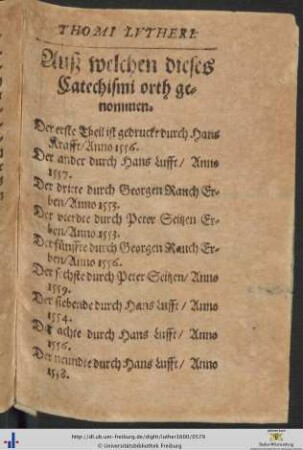 THOMI LVTHERI:
Auß welchen dieses
Catechismi orth ge-
nommen.
Der erste Theil ist gedruckt durch Hans
Krafft/ Anno 1556.
Der ander durch Hans Lufft/ Anno
1557.
Der dritte durch Georgen Rauch Er-
ben/ Anno 1553.
Der vierdte durch Peter Seitzen Er-
ben/ Anno 1553.
Der fünffte durch Georgen Rauch Er-
ben/ Anno 1556.
Der sechste durch Peter Seitzen/ Anno
1559.
Der siebende durch Hans Lufft/ Anno
1554.
Der achte durch Hans Lufft/ Anno
1556.
Der neundte durch Hans Lufft/ Anno
1558.
http://dl.ub.uni-freiburg.de/diglit/luther1600/0579
© Universitätsbibliothek Freiburg